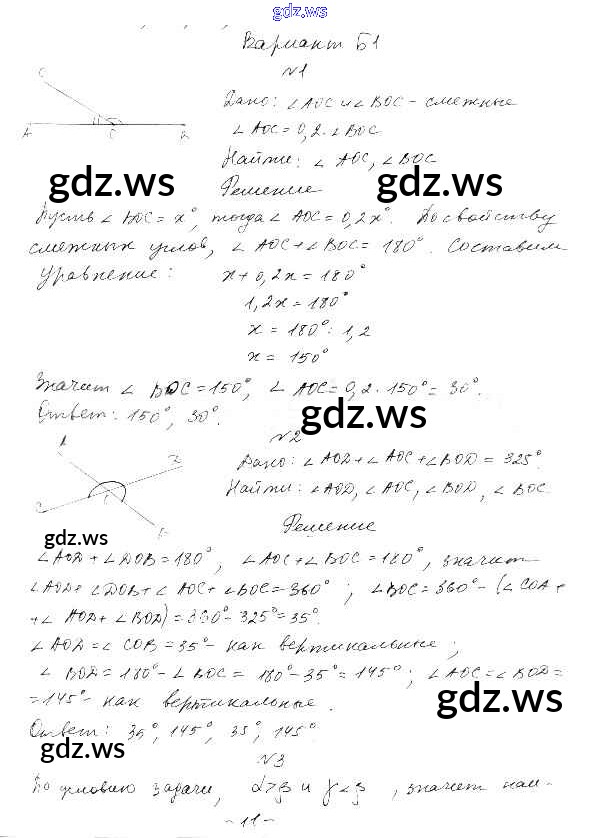 gdz.ws
Вариант Б1
№1
C
Дано: ∠AOC и ∠BOC - смежные
A O B
∠AOC = 0,2 · ∠BOC
Найти: ∠AOC, ∠BOC
Решение
gdz.ws gdz.ws
Пусть ∠BOC = x°, тогда ∠AOC = 0,2x°. По свойству
смежных углов, ∠AOC + ∠BOC = 180°. Составим
уравнение: x + 0,2x = 180°
1,2x = 180°
x = 180° : 1,2
x = 150°
Значит ∠BOC = 150°, ∠AOC = 0,2 · 150° = 30°.
Ответ: 150°, 30°.
gdz.ws
№2
A
Дано: ∠AOD + ∠AOC + ∠BOD = 325°.
Найти: ∠AOD, ∠AOC, ∠BOD, ∠BOC.
C
Решение
gdz.ws
∠AOD + ∠DOB = 180°, ∠AOC + ∠BOC = 180°, значит
∠AOD + ∠DOB + ∠AOC + ∠BOC = 360°; ∠BOC = 360° - (∠COA +
+ ∠AOD + ∠BOD) = 360° - 325° = 35°.
∠AOD = ∠COB = 35° - как вертикальные;
∠BOD = 180° - ∠BOC = 180° - 35° = 145°; ∠AOC = ∠BOD =
= 145° - как вертикальные.
gdz.ws
Ответ: 35°, 145°, 35°, 145°.
gdz.ws
№3
По условию задачи, α > β и γ < β, значит наи-
- 11 -
gdz.ws